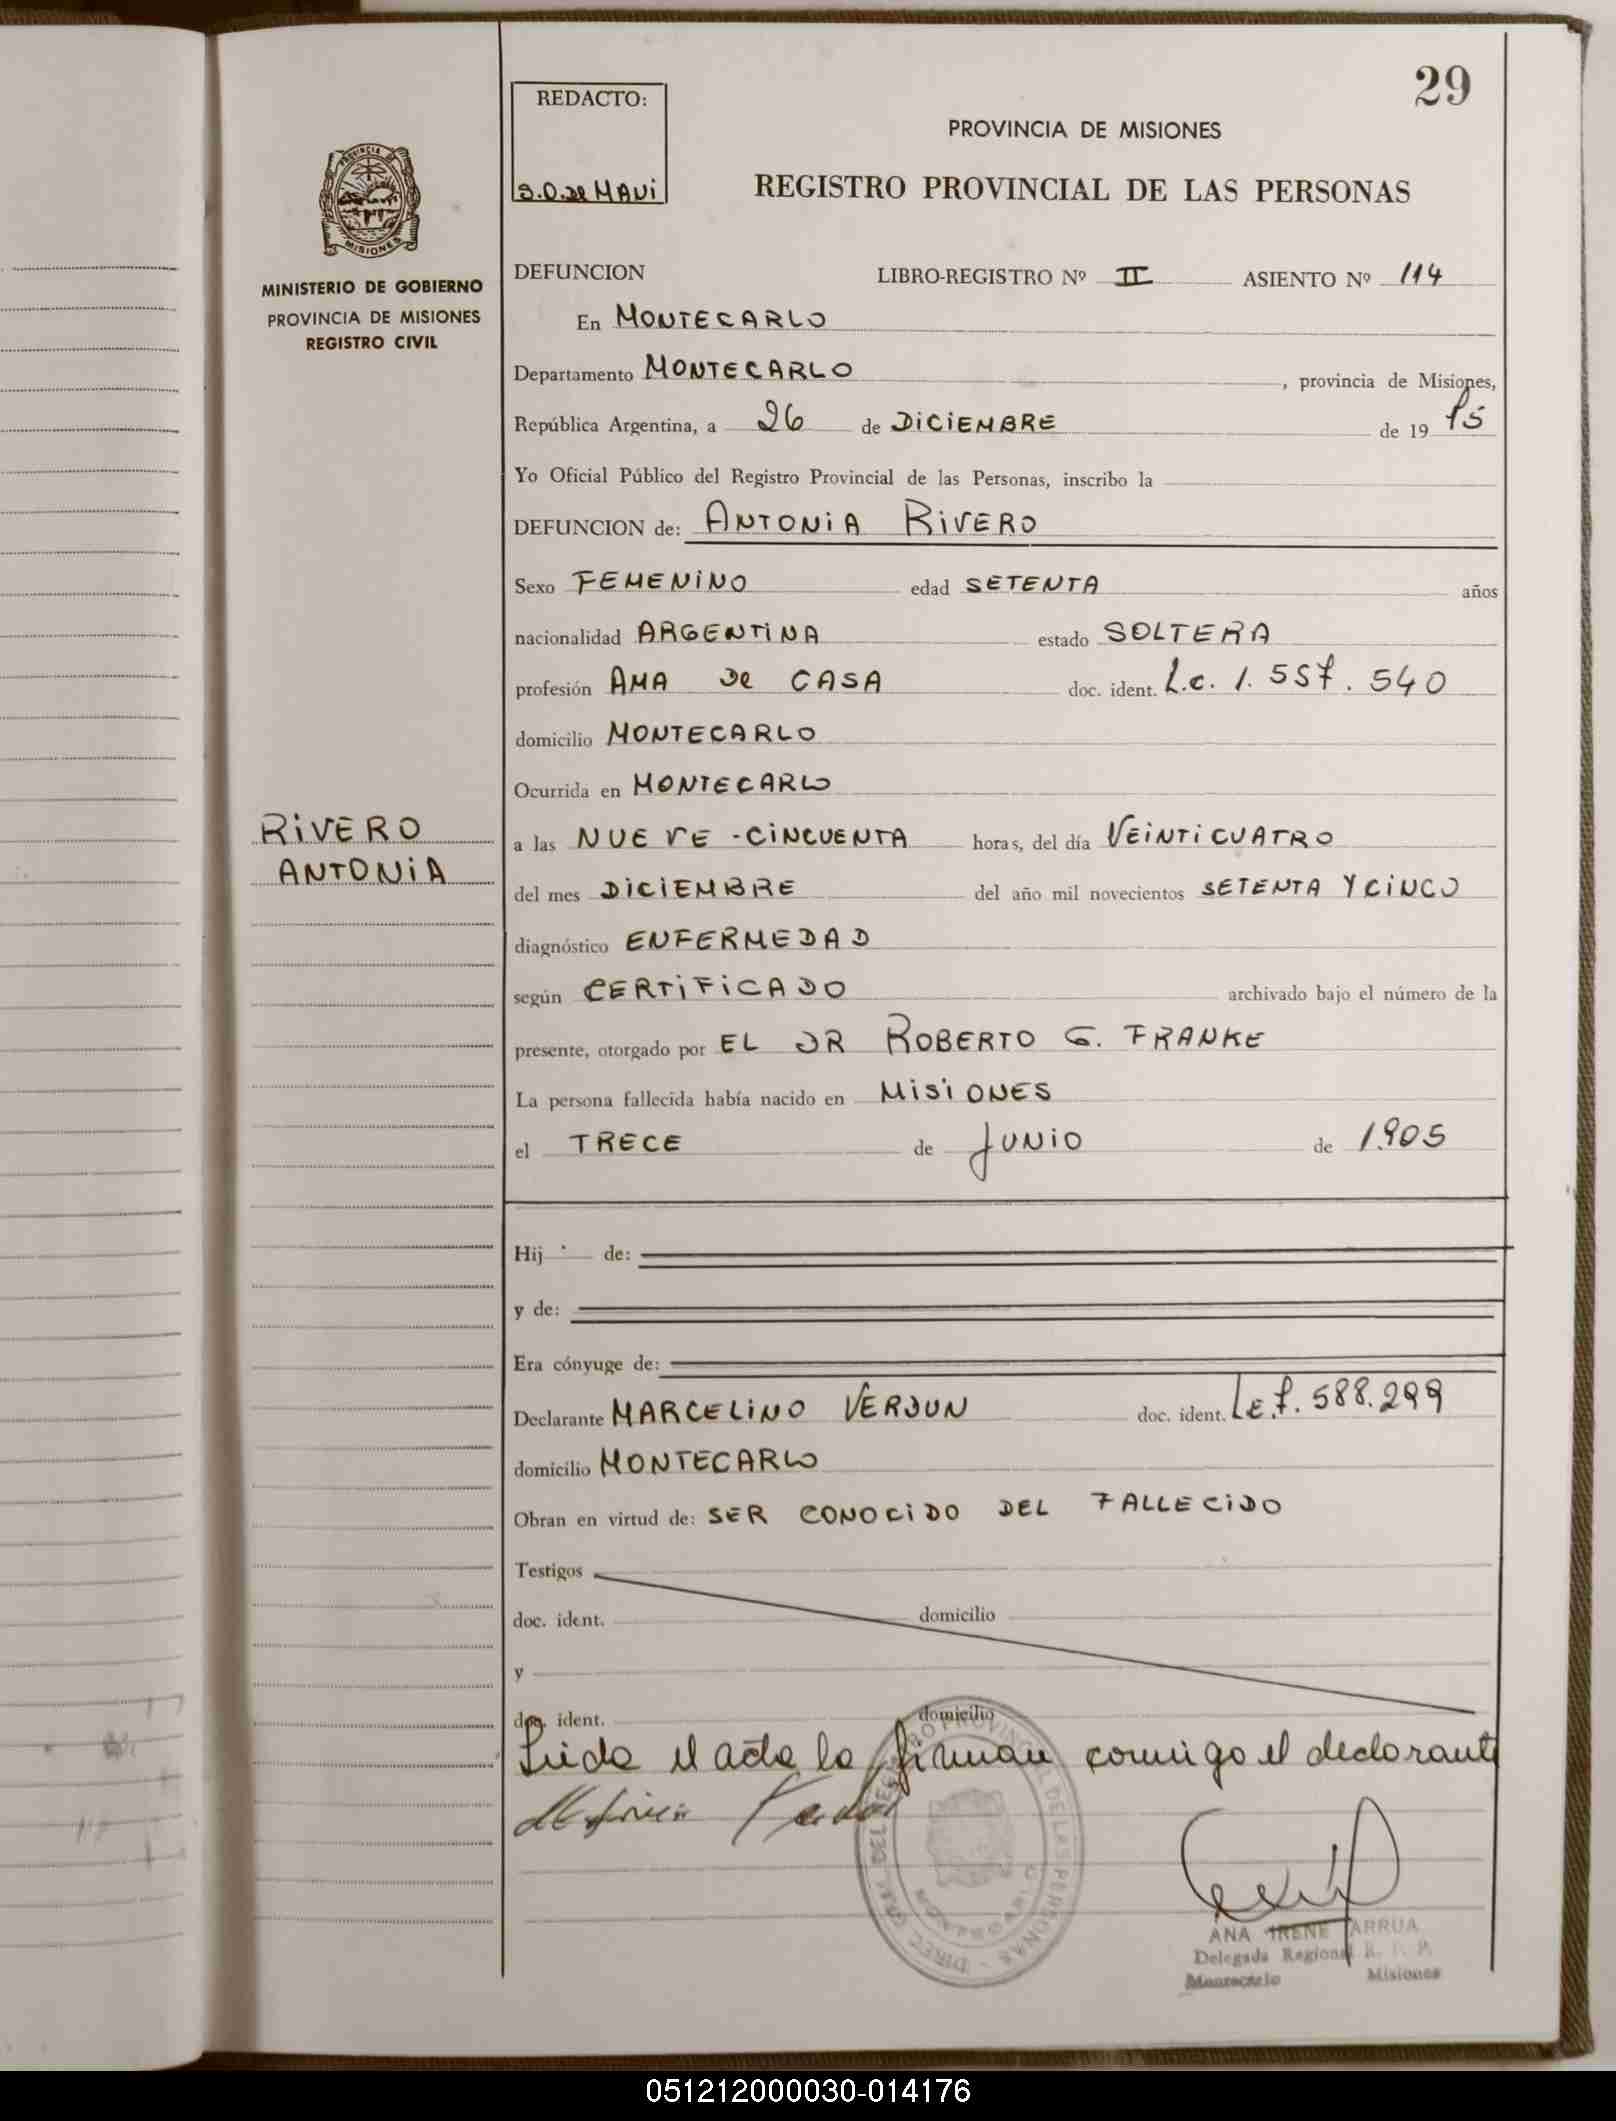 29
REDACTO:
S.O. de MAUi
PROVINCIA DE MISIONES
REGISTRO PROVINCIAL DE LAS PERSONAS
PROVINCIA DE
MISIONES
MINISTERIO DE GOBIERNO
PROVINCIA DE MISIONES
REGISTRO CIVIL
DEFUNCION LIBRO-REGISTRO Nº II ASIENTO Nº 114
En MONTECARLO
Departamento MONTECARLO, provincia de Misiones,
República Argentina, a 26 de DICIEMBRE de 19 75
Yo Oficial Público del Registro Provincial de las Personas, inscribo la
DEFUNCION de: ANTONIA RIVERO
Sexo FEMENINO edad SETENTA años
nacionalidad ARGENTINA estado SOLTERA
profesión AMA DE CASA doc. ident. L.C. 1.557.540
domicilio MONTECARLO
Ocurrida en MONTECARLO
RIVERO
ANTONIA
a las NUEVE - CINCUENTA horas, del día VEINTICUATRO
del mes DICIEMBRE del año mil novecientos SETENTA Y CINCO
diagnóstico ENFERMEDAD
según CERTIFICADO archivado bajo el número de la
presente, otorgado por EL DR ROBERTO G. FRANKE
La persona fallecida había nacido en MISIONES
el TRECE de JUNIO de 1.905
Hij de:
y de:
Era cónyuge de:
Declarante MARCELINO VERDUN doc. ident. L.E. 7.588.299
domicilio MONTECARLO
Obran en virtud de: SER CONOCIDO DEL FALLECIDO
Testigos
doc. ident. domicilio
y
doc. ident. domicilio
Leida el acta la firman conmigo el declarante
DIREC. GRAL. DEL REGISTRO PROVINCIAL DE LAS PERSONAS
MONTECARLO
ANA IRENE ARRUA
Delegada Regional R. P. P.
Montecarlo Misiones
051212000030-014176